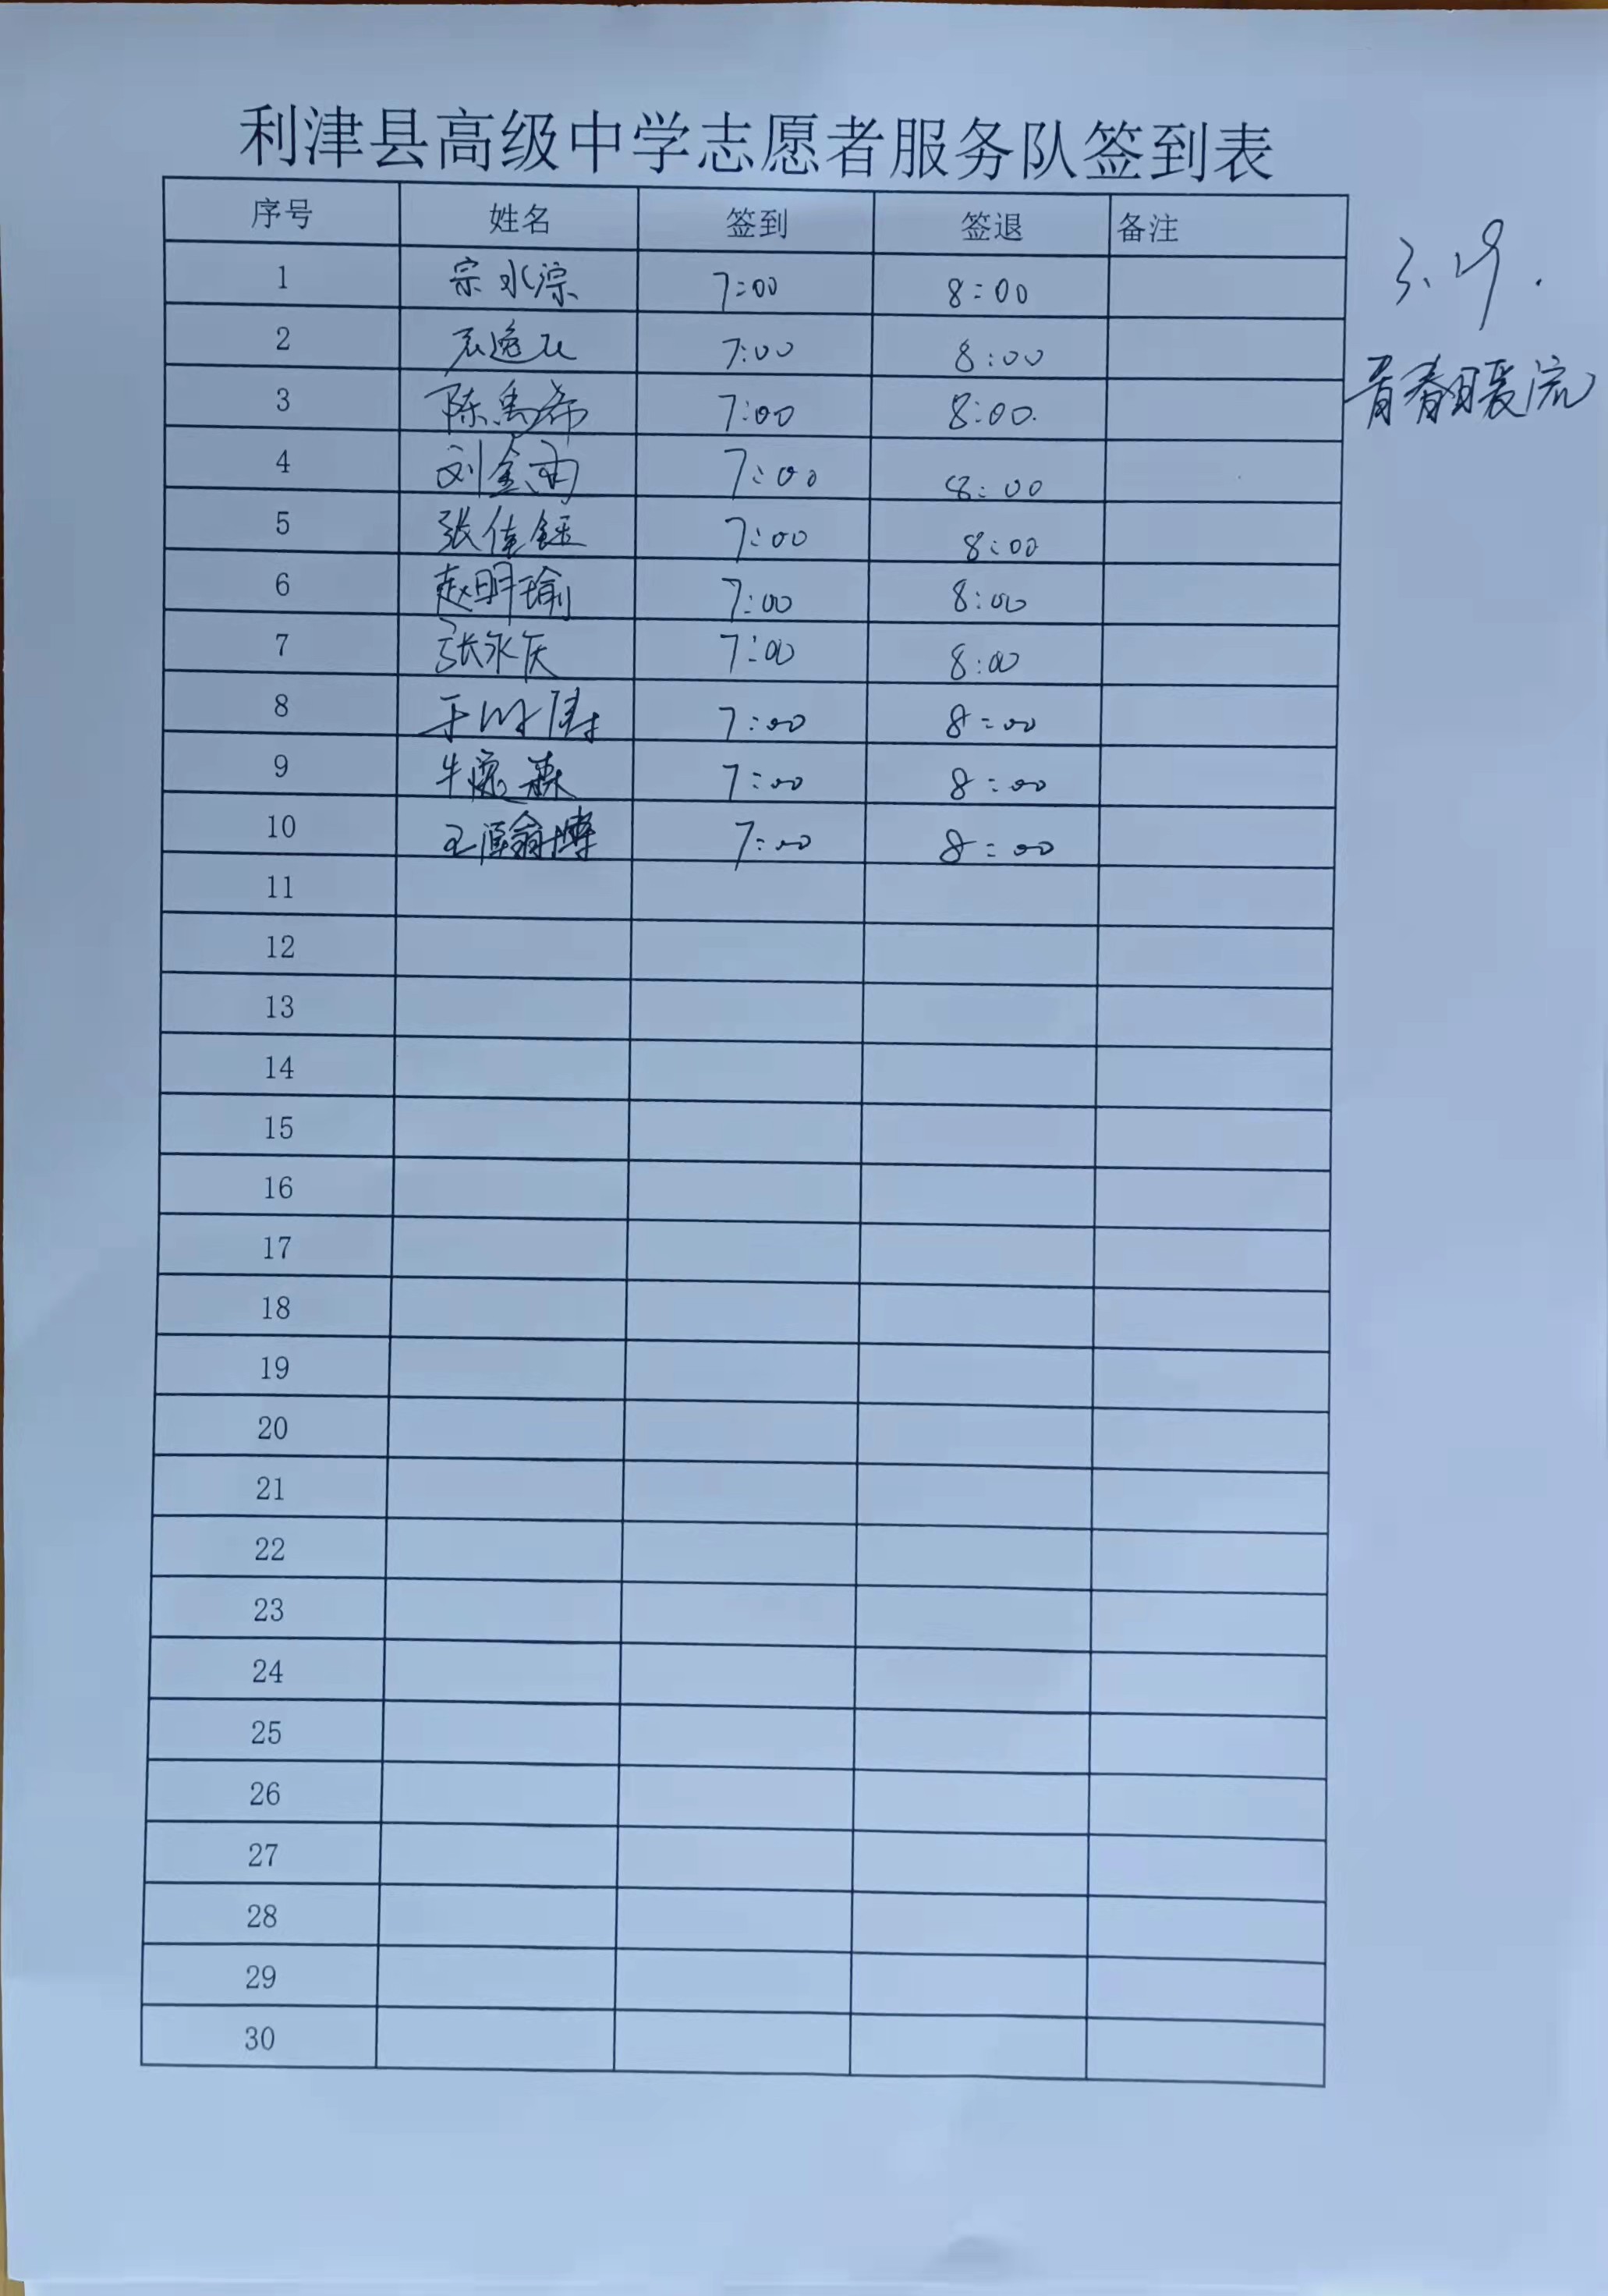 利津县高级中学志愿者服务队签到表
序号 姓名 签到 签退 备注
3.19.
青春暖流
1 宗水淙 7:00 8:00
2 逸 7:00 8:00
3 陈禹希 7:00 8:00.
4 刘金雨 7:00 8:00
5 张佳钰 7:00 8:00
6 赵明瑜 7:00 8:00
7 张永庆 7:00 8:00
8 于 7:00 8:00
9 牛逸森 7:00 8:00
10 王瀚博 7:00 8:00
11
12
13
14
15
16
17
18
19
20
21
22
23
24
25
26
27
28
29
30